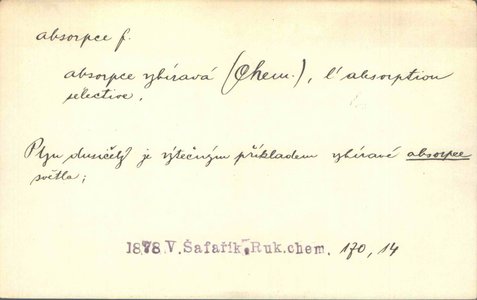 absorpce f.
absorpce vybíravá (Chem.), l'absorption
sélective.
Plyn dusičelý je výtečným příkladem vybíravé absorpce
světla;
1878.V.Šafařík, Ruk.chem. 170, 14